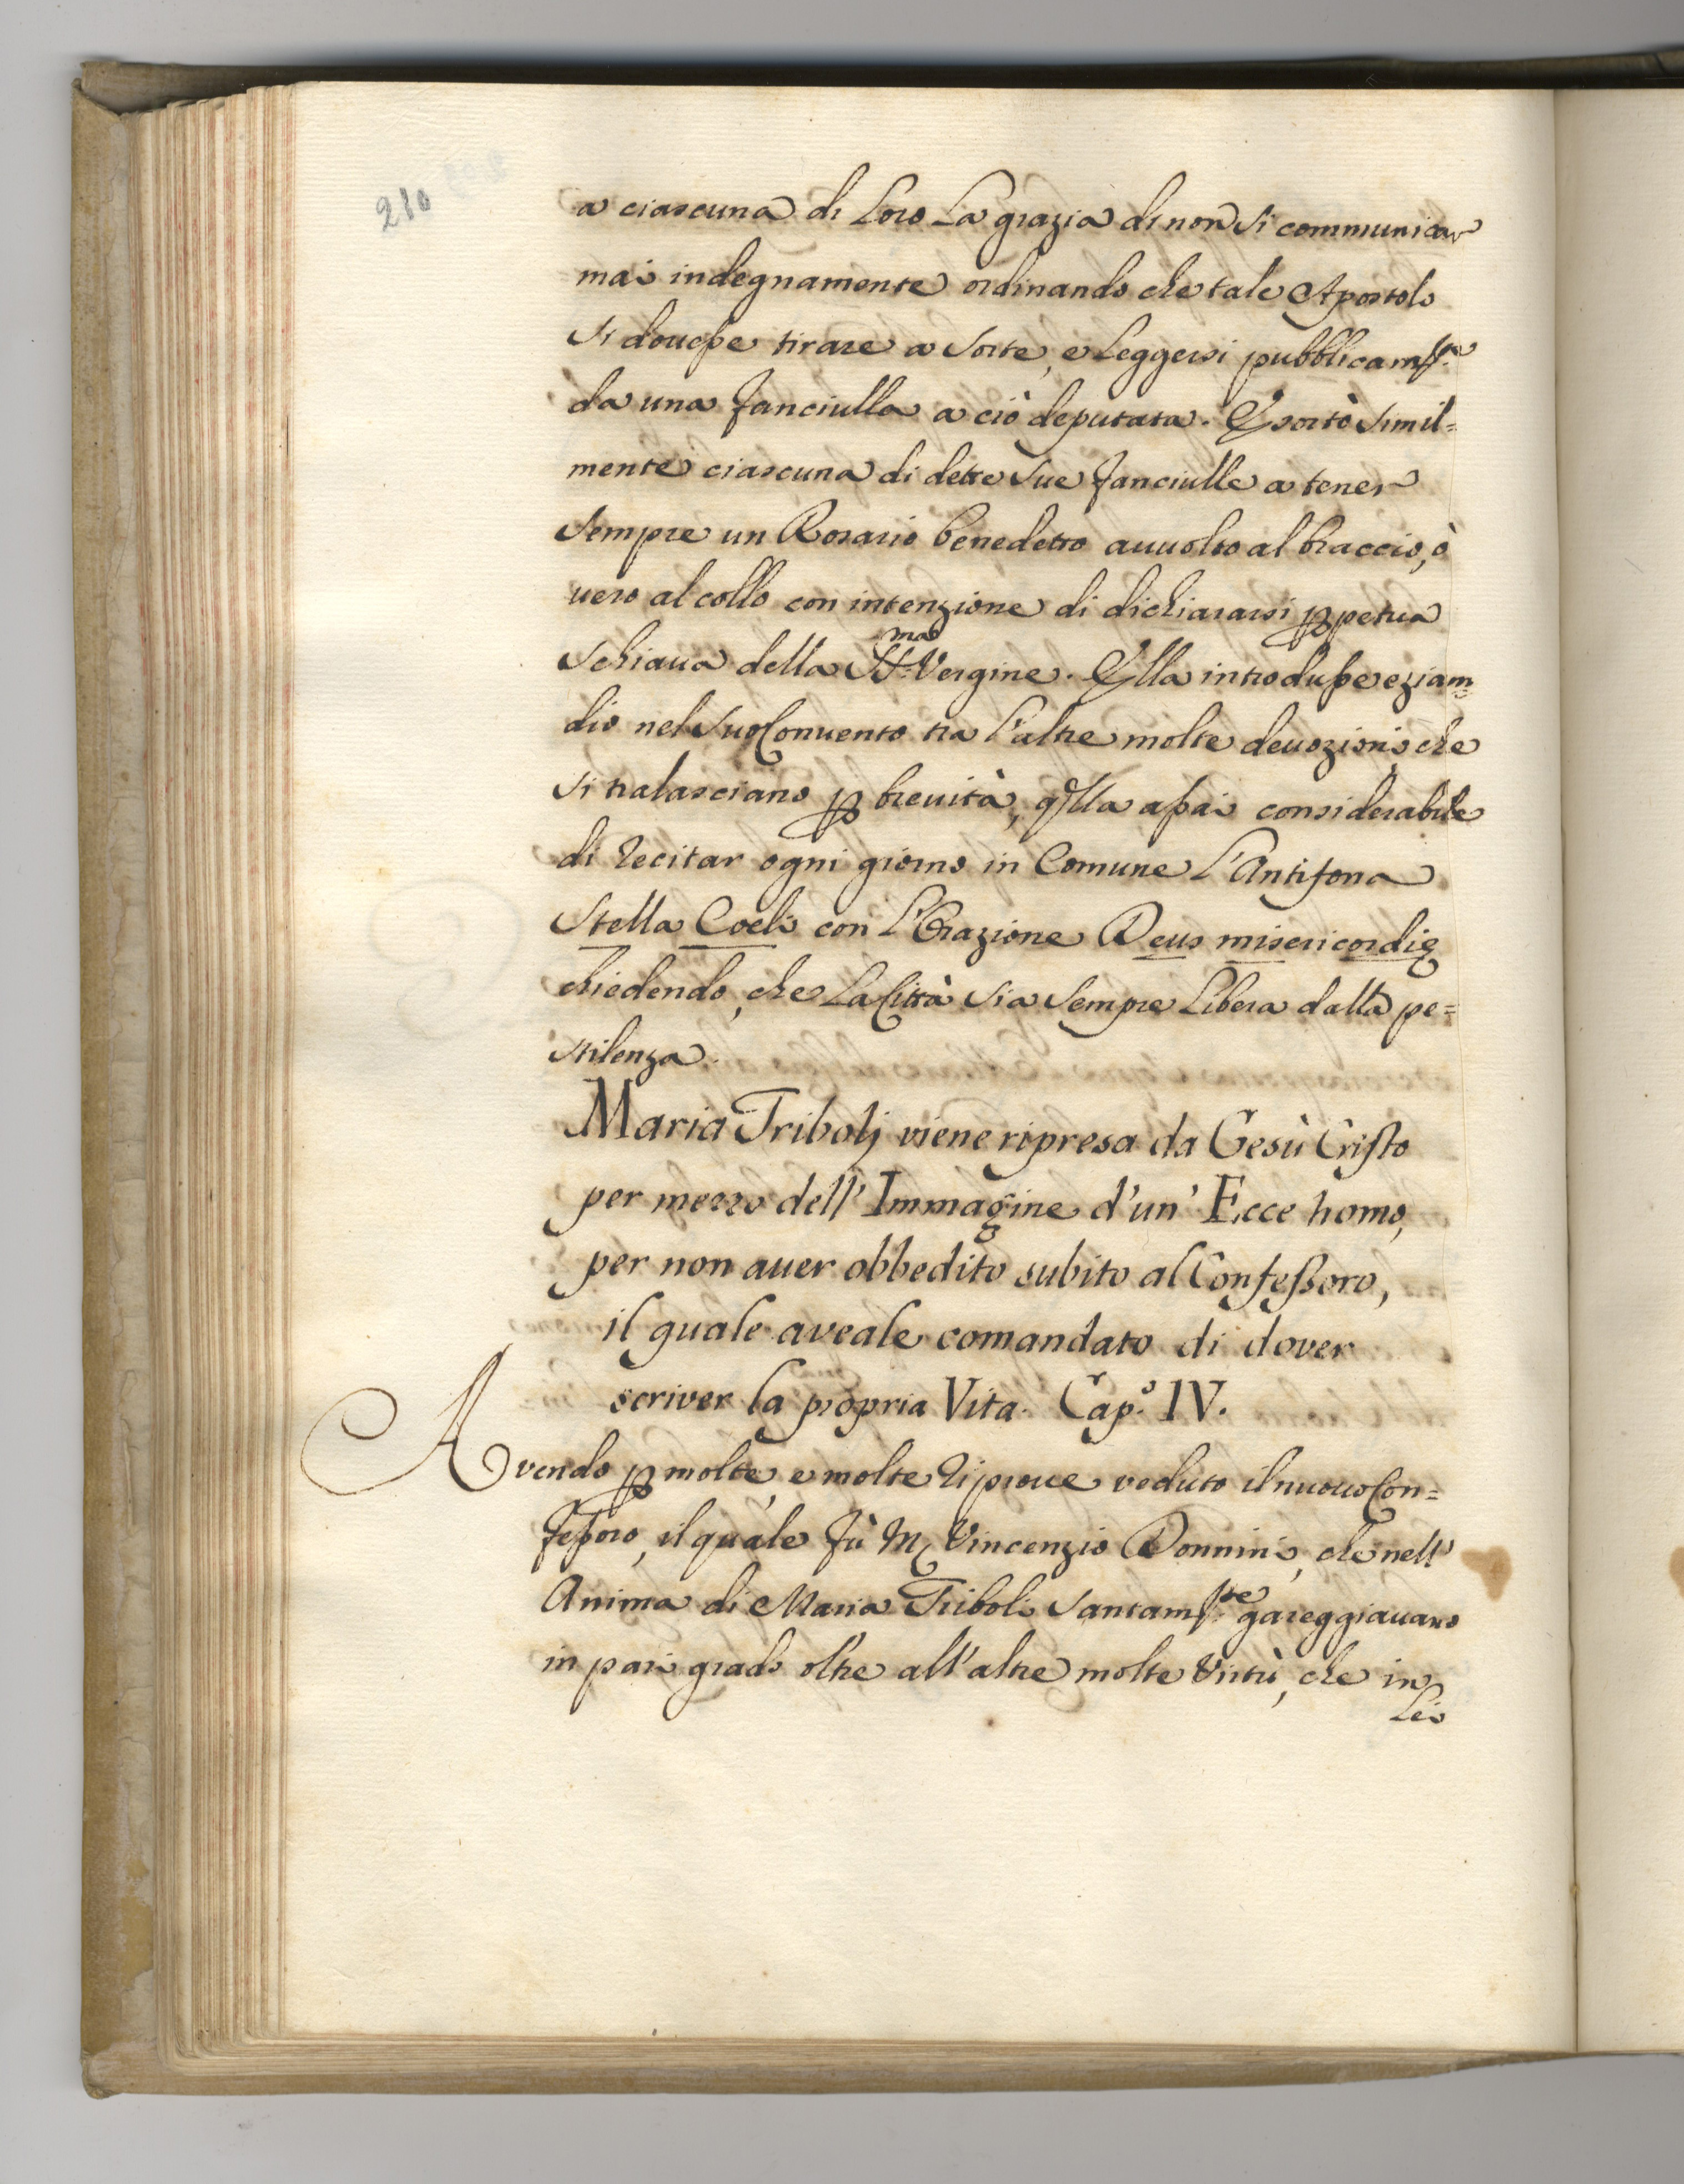 210
a ciascuna di Loro La grazia di non si communicar
mai indegnamente ordinando che tale Apostolo
si douesse tirare a sorte, e Leggersi pubblicam.te
da una fanciulla a ciò deputata. Esortò simil=
mente ciascuna di dette sue fanciulle a tener
sempre un Rosario benedetto auuolto al braccio, ò
uero al collo con intenzione di dichiararsi ꝑpetua
schiaua della SS.ma Vergine. Ella introdusse eziam=
dio nel suo Conuento tra l'altre molte deuozioni, che
si tralasciano ꝑ breuità, qlla assai considerabile
di recitar ogni giorno in Comune L'Antifona
Stella Coeli con L'Orazione Deus misericordię
chiedendo, che La Città sia sempre Libera dalla pe=
stilenza.
Maria Tribolj viene ripresa da Gesù Cristo
per mezzo dell' Immagine d'un' Ecce homo,
per non auer obbedito subito al Confessoro,
il quale aveale comandato di dover
scriver la propria Vita. Cap.o IV.
Avendo ꝑ molte, e molte riproue veduto il nuouo Con=
fessoro, il quale fù M. Vincenzio Donnini, che nell'
Anima di Maria Triboli santam.te gareggiauano
in pari grado oltre all'altre molte Virtù, che in
Lei